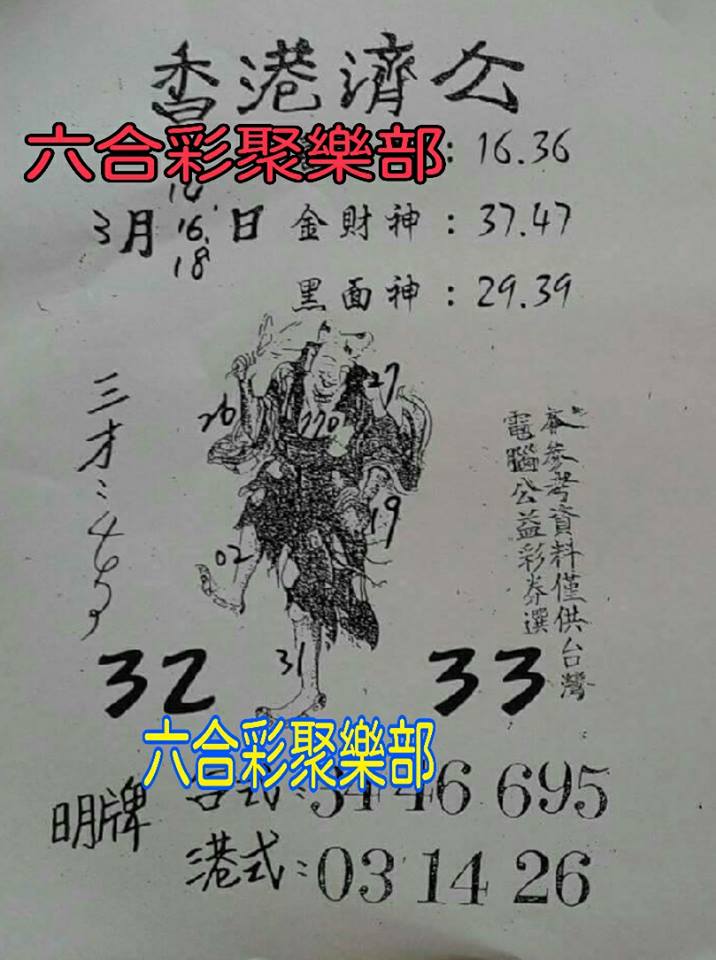 香港濟公
六合彩聚樂部
：16.36
3月14.16.18日
金財神：37.47
黑面神：29.39
三才：
26
27
770
19
02
31
32
33
參考資料僅供台灣
電腦公益彩券選
六合彩聚樂部
明牌
台式：34 46 695
港式：03 14 26